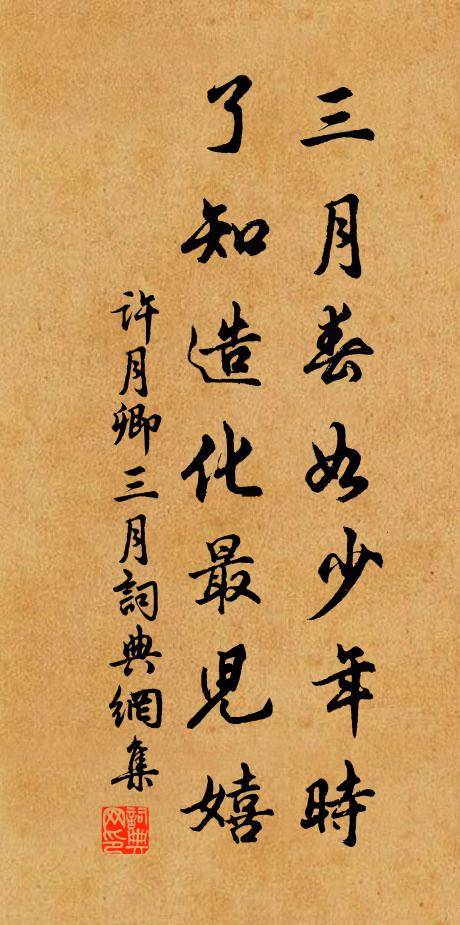 三月春如少年時
了知造化最児嬉
許月卿三月詞典網集
詞典网印